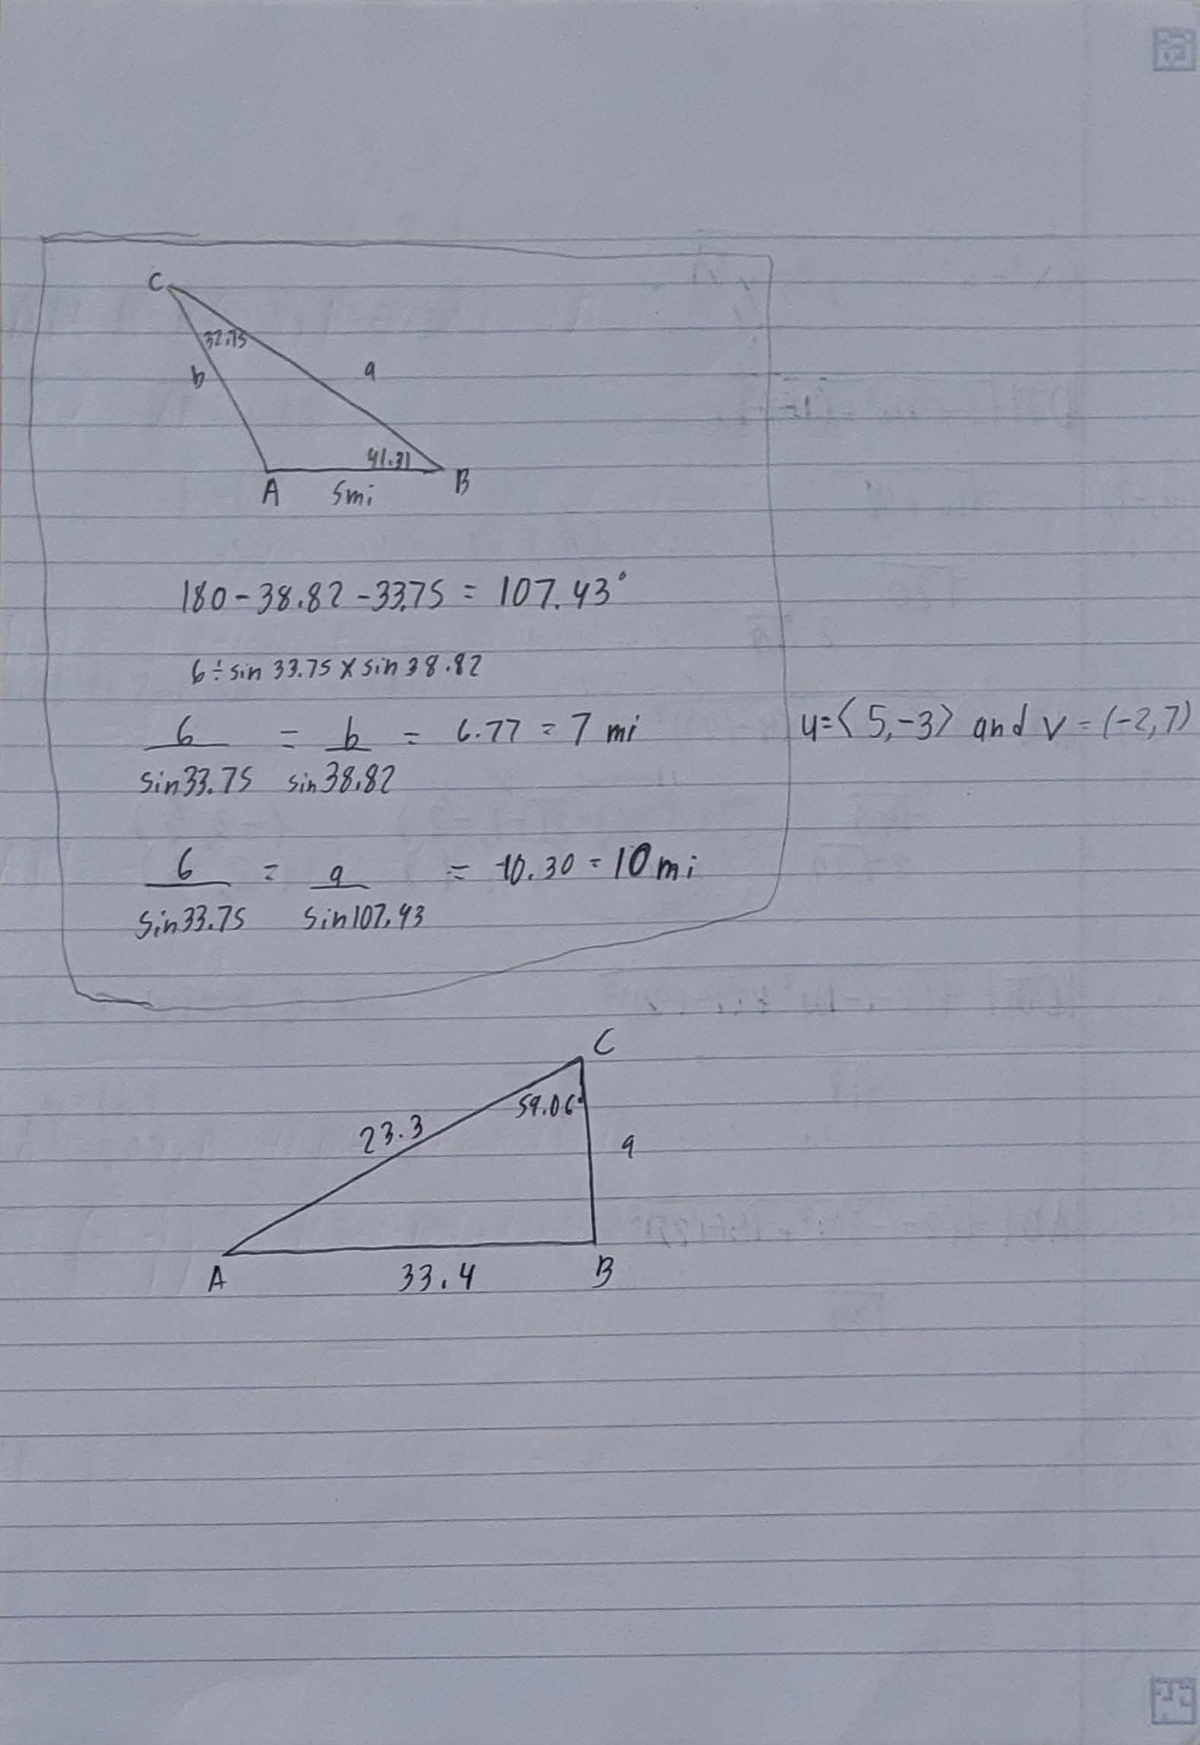 C
32.75
b
a
41.31
A
5mi
B
180 - 38.82 - 33.75 = 107.43°
6 ÷ sin 33.75 x sin 38.82
6/sin33.75 = b/sin38.82 = 6.77 = 7 mi
u = ⟨5, -3⟩ and v = (-2, 7)
6/sin33.75 = a/sin107.43 = 10.30 = 10 mi
C
59.06°
23.3
a
A
33.4
B